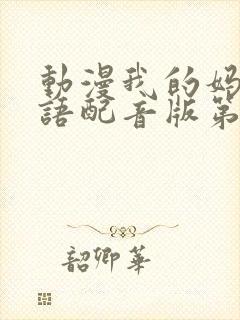 動漫我的媽
語配音版第
韶卿華